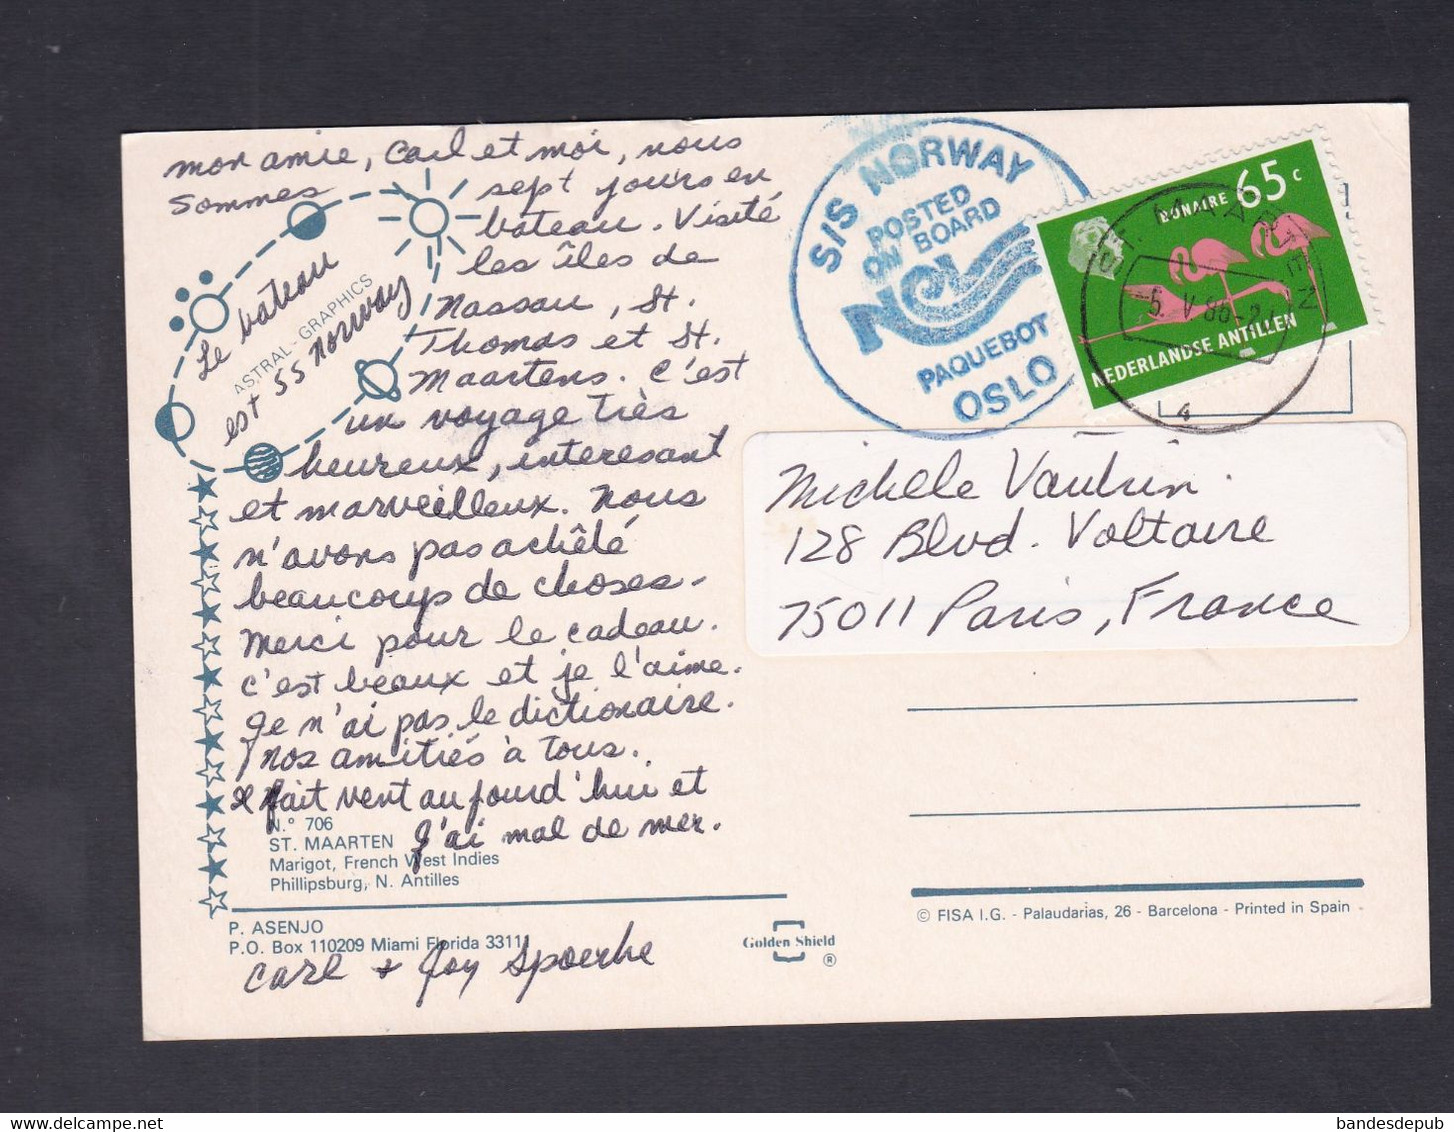 mon amie, Carl et moi, nous
sommes sept jours en
bateau. Visité
les îles de
Nassau, St.
Thomas et St.
Maartens. C'est
un voyage très
heureux, interesant
et marveilleux. Nous
n'avons pas achêté
beaucoup de choses.
Merci pour le cadeau.
c'est beaux et je l'aime.
Je n'ai pas le dictionaire.
nos amitiés à tous.
fait vent aujourd'hui et
J'ai mal de mer.
Le bateau
est SS Norway
ASTRAL - GRAPHICS
N.° 706
ST. MAARTEN
Marigot, French West Indies
Phillipsburg, N. Antilles
P. ASENJO
P.O. Box 110209 Miami Florida 33111
Carl & Joy Spoerhe
Golden Shield
®
S/S NORWAY
POSTED
ON BOARD
NCL
PAQUEBOT
OSLO
BONAIRE 65 c
NEDERLANDSE ANTILLEN
MAARTEN
-5. V 86-
4
Michele Vautrin.
128 Blvd. Voltaire
75011 Paris, France
© FISA I.G. - Palaudarias, 26 - Barcelona - Printed in Spain
bandesdepub